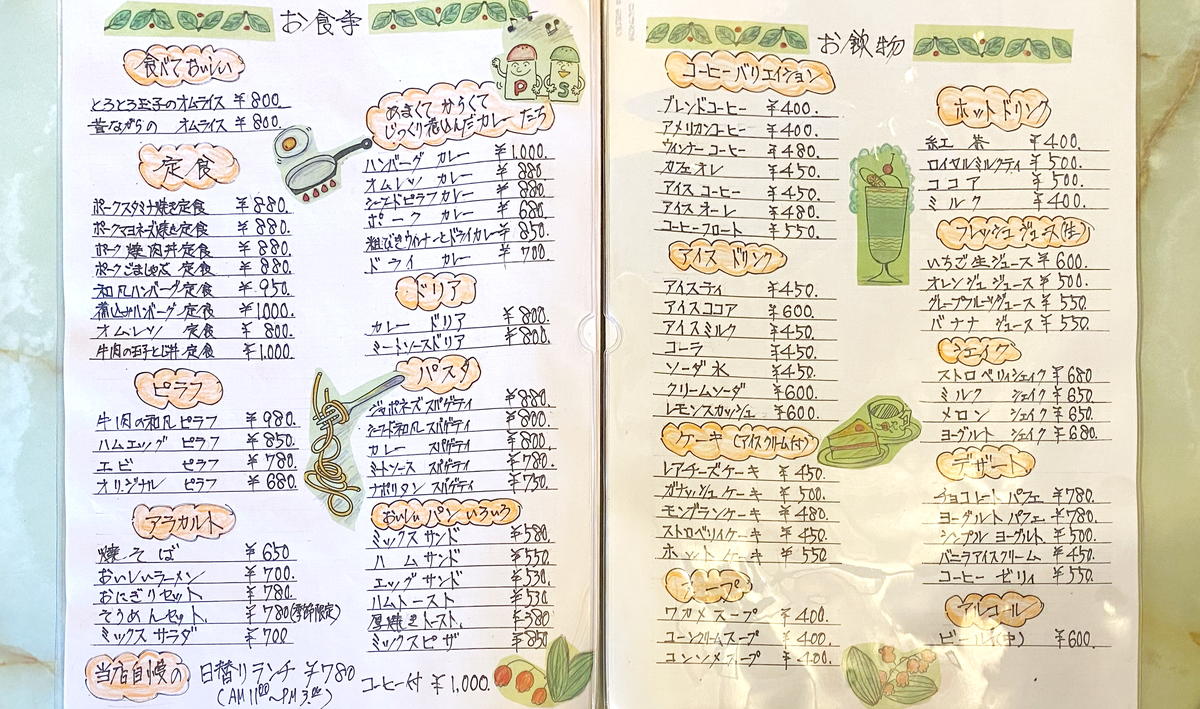 お食事
食べておいしい
とろとろ玉子のオムライス ¥800.
昔ながらの オムライス ¥800.
定食
ポークスタミナ焼き定食 ¥880.
ポークマヨネーズ焼き定食 ¥880.
ポーク焼肉丼定食 ¥880.
ポークごましゃぶ定食 ¥880.
和風ハンバーグ定食 ¥950.
煮込みハンバーグ定食 ¥1000.
オムレツ 定食 ¥800.
牛肉の玉子とじ丼定食 ¥1,000.
ピラフ
牛肉の和風ピラフ ¥980.
ハムエッグ ピラフ ¥850.
エビ ピラフ ¥780.
オリジナル ピラフ ¥680.
アラカルト
焼そば ¥650
おいしいラーメン ¥700.
おにぎりセット ¥780
そうめんセット ¥780(季節限定)
ミックスサラダ ¥700
当店自慢の 日替りランチ ¥780
(AM11:00~PM3:00)
コーヒー付 ¥1,000.
P S
あまくて からくて
じっくり煮込んだカレーたち
ハンバーグ カレー ¥1,000.
オムレツ カレー ¥880
シーフードピラフカレー ¥880
ポーク カレー ¥680
粗びきウィンナーとドライカレー ¥850.
ドライ カレー ¥700.
ドリア
カレー ドリア ¥800.
ミートソースドリア ¥800.
パスタ
ジャポネズ スパゲティ ¥880.
シーフード和風スパゲティ ¥800.
カレー スパゲティ ¥800.
ミートソース スパゲティ ¥780.
ナポリタン スパゲティ ¥750.
おいしいパンいろいろ
ミックスサンド ¥580.
ハムサンド ¥550.
エッグサンド ¥530.
ハムトースト ¥530
厚焼きトースト ¥380
ミックスピザ ¥850
お飲物
コーヒーバリエイション
ブレンドコーヒー ¥400.
アメリカンコーヒー ¥400.
ウィンナーコーヒー ¥480.
カフェオレ ¥450.
アイスコーヒー ¥450.
アイスオーレ ¥480.
コーヒーフロート ¥550.
アイスドリンク
アイスティ ¥450.
アイスココア ¥600.
アイスミルク ¥450.
コーラ ¥450.
ソーダ水 ¥450.
クリームソーダ ¥600.
レモンスカッシュ ¥600.
ケーキ(アイスクリーム付)
レアチーズケーキ ¥450.
ガナッシュケーキ ¥500.
モンブランケーキ ¥480.
ストロベリィケーキ ¥450.
ホットケーキ ¥550
スープ
ワカメスープ ¥400.
コーンクリームスープ ¥400.
コンソメスープ ¥400.
ホットドリンク
紅茶 ¥400.
ロイヤルミルクティ ¥500.
ココア ¥500.
ミルク ¥400.
フレッシュジュース(生)
いちご生ジュース ¥600.
オレンジジュース ¥500.
グレープフルーツジュース ¥550
バナナ ジュース ¥550.
シェイク
ストロベリィシェイク ¥680
ミルク シェイク ¥650
メロン シェイク ¥650.
ヨーグルト シェイク ¥680.
デザート
チョコレートパフェ ¥780.
ヨーグルトパフェ ¥780.
シンプルヨーグルト ¥500.
バニラアイスクリーム ¥450.
コーヒーゼリィ ¥550.
アルコール
ビール(中) ¥600.